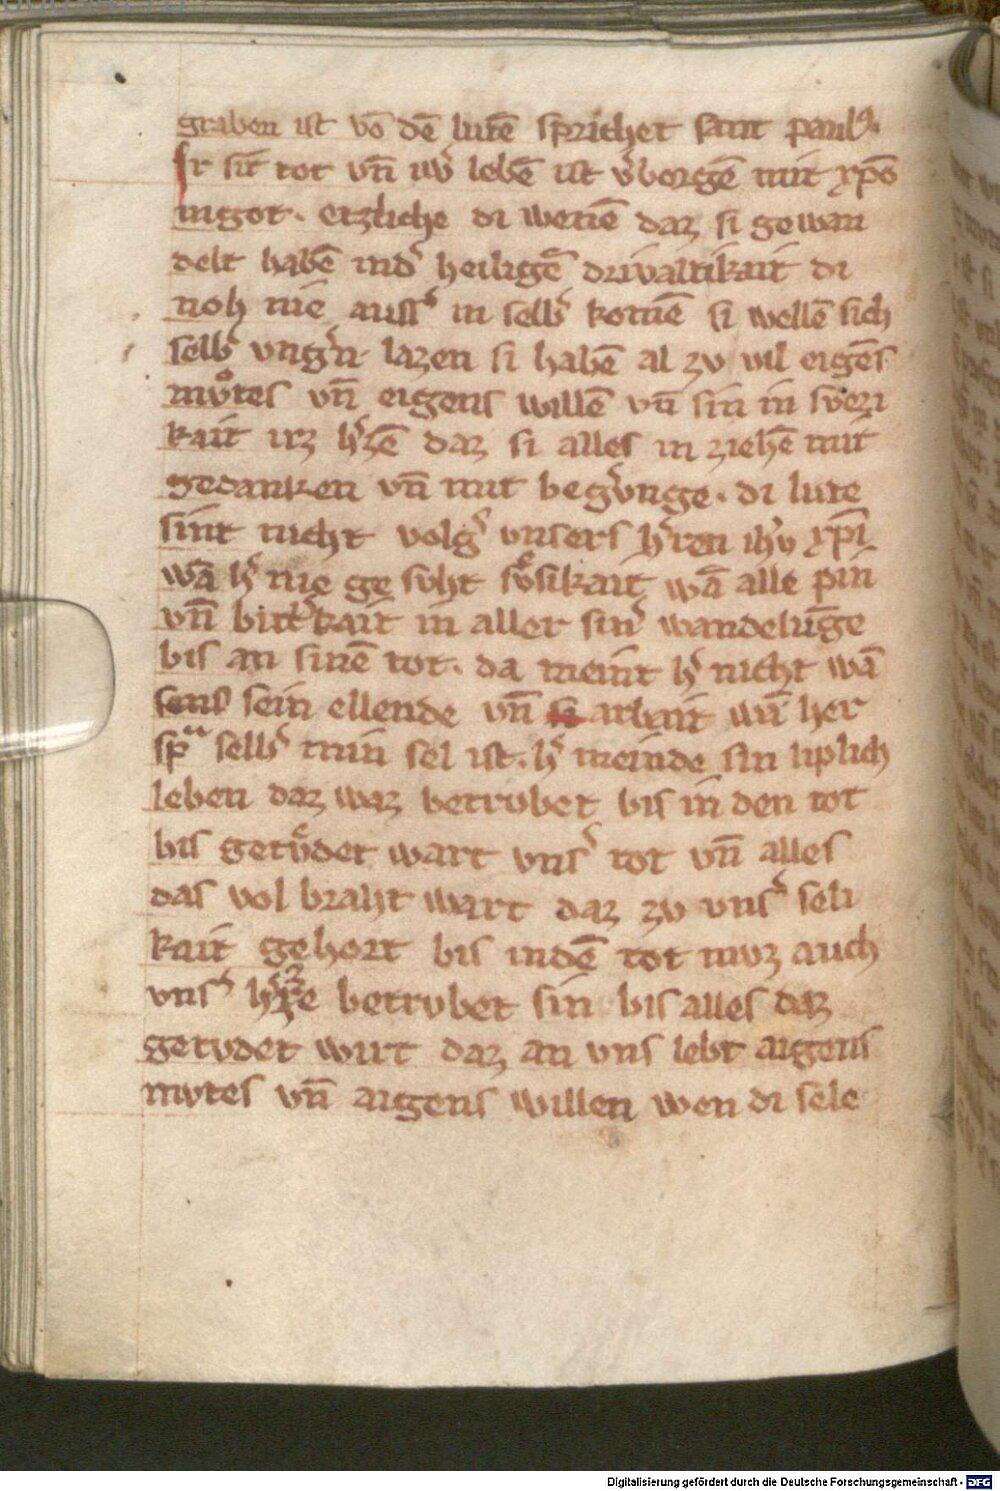 graben ist vō dē lutē sprichet sant paulꝰ.
Ir sit tot vn̄ iwͬ lebē ist v̓borgē mit xp̄o
ingot. etzliche di wenē daz si gewan
delt habē indˀ heiligē drivaltikait di
noh nie aussˀ in selbˀ komē si wellē sich
selbˀ vngˀn lazen si habē al zv vil eigēs
mvͦtes vn̄ eigens willē vn̄ sin in svͤzi
kait irz hˀzē daz si alles in ziehē mit
gedanken vn̄ mit begˀvnge. di lute
sint nicht volgˀ vnsers hˀren ih̄v xp̄i
wā hˀ nie ge svht svͦsikait wā alle pin
vn̄ bittˀkait in aller sinˀ wandelūge
bis an sinē tot. da meint hˀ nicht wā
sein ellende vn̄ arbait wā her
spᵃ selbˀ min sel ist. hˀ meinde sin liplich
leben daz waz betrvbet bis in den tot
bis getvͤdet wart vnsˀ tot vn̄ alles
das vol braht wart daz zv vnsˀ seli
kait gehort bis indē tot mvz auch
vnsˀ betrvbet sin bis alles daz
getvdet wirt daz an vns lebt aigens
mvtes vn̄ aigens willen wen di sele
Digitalisierung gefördert durch die Deutsche Forschungsgemeinschaft - DFG